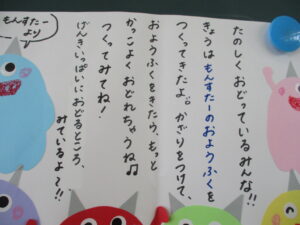 たのしくおどっているみんな!!
きょうはもんすたーのおようふくを
つくってきたよ。かざりをつけて、
おようふくをきたら、もっと
かっこよくおどれちゃうね♫
つくってみてね!
げんきいっぱいにおどるところ、
みているよ〜!!
もんすたー
より